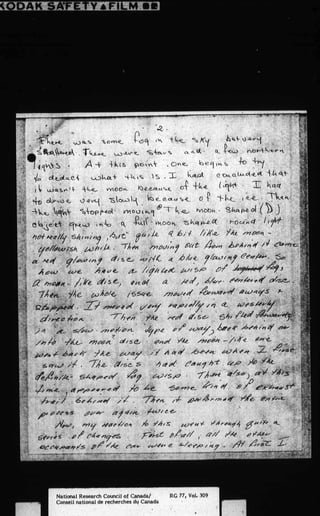 KODAK SAFETY FILM
2.
There was some fog in the sky but very
There were stars and a few northern
lights. At this point, one begins to try
to deduct what this is. I had concluded that
it wasn't the moon because of the light I had
to drive very slowly because of the ice. Then
the light stopped moving. The moon-shaped ( )
object grew into a full-moon shaped round light
not really shining, but quite a bit like the moon -
yellowish white. Then moving out from behind it came
a red glowing disc with a blue glowing center. So
now we have a lighted wisp of fog,
a moon-like disc, and a red, blue-centered disc.
Then the whole issue moved forward always
It moved very rapidly in a westerly
direction. Then the red disc shifted
in a slow motion type of way, back behind or
into the moon disc and the moon-like one
went back the way it had been when I first
saw it. The discs had caught up to the
definite shaped fog wisp. Then also, at this
time, appeared to be some kind of exhaust
trail behind it. Then it performed the entire
process over again twice.
Now, my reaction to this went through quite a
series of changes. First of all, all the other
occupants of the car were sleeping. At first I
National Research Council of Canada/
Conseil national de recherches du Canada
RG 77, Vol. 309